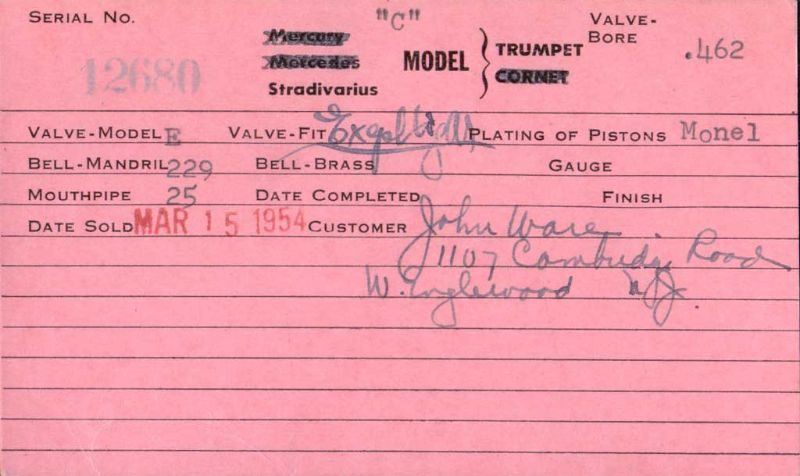 SERIAL NO. 12680 "C" VALVE-BORE .462
Mercury
Mercedes
Stradivarius MODEL TRUMPET
CORNET
VALVE-MODEL E VALVE-FIT PLATING OF PISTONS Monel
BELL-MANDRIL 229 BELL-BRASS GAUGE
MOUTHPIPE 25 DATE COMPLETED FINISH
DATE SOLD MAR 15 1954 CUSTOMER John Ware
1107 Cambridge Road
W. Englewood NJ